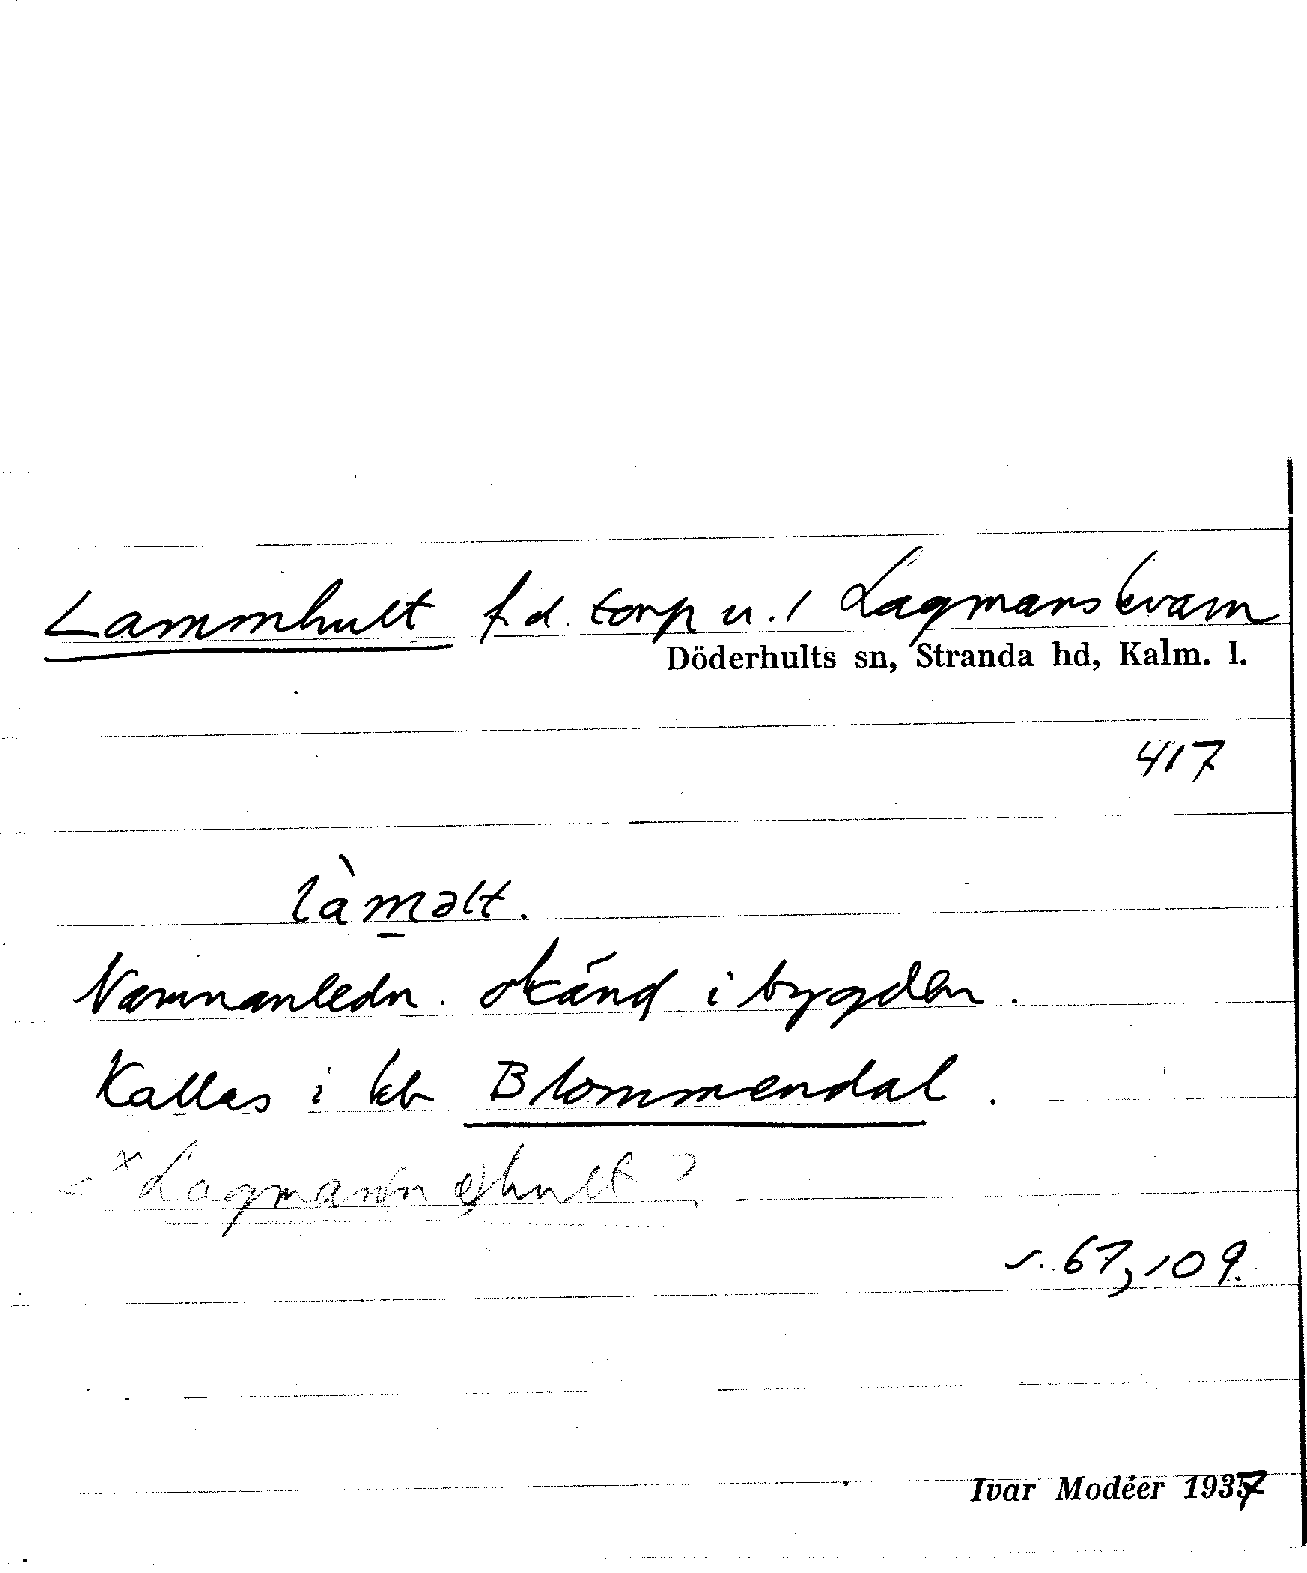 Lammhult f.d. torp u. / Lagmanskvarn
Döderhults sn, Stranda hd, Kalm. l.
417
làməlt.
Namnanledn. okänd i bygden.
Kallas i kb Blommendal.
< *Lagmann hult ?
s. 67, 109.
Ivar Modéer 1937